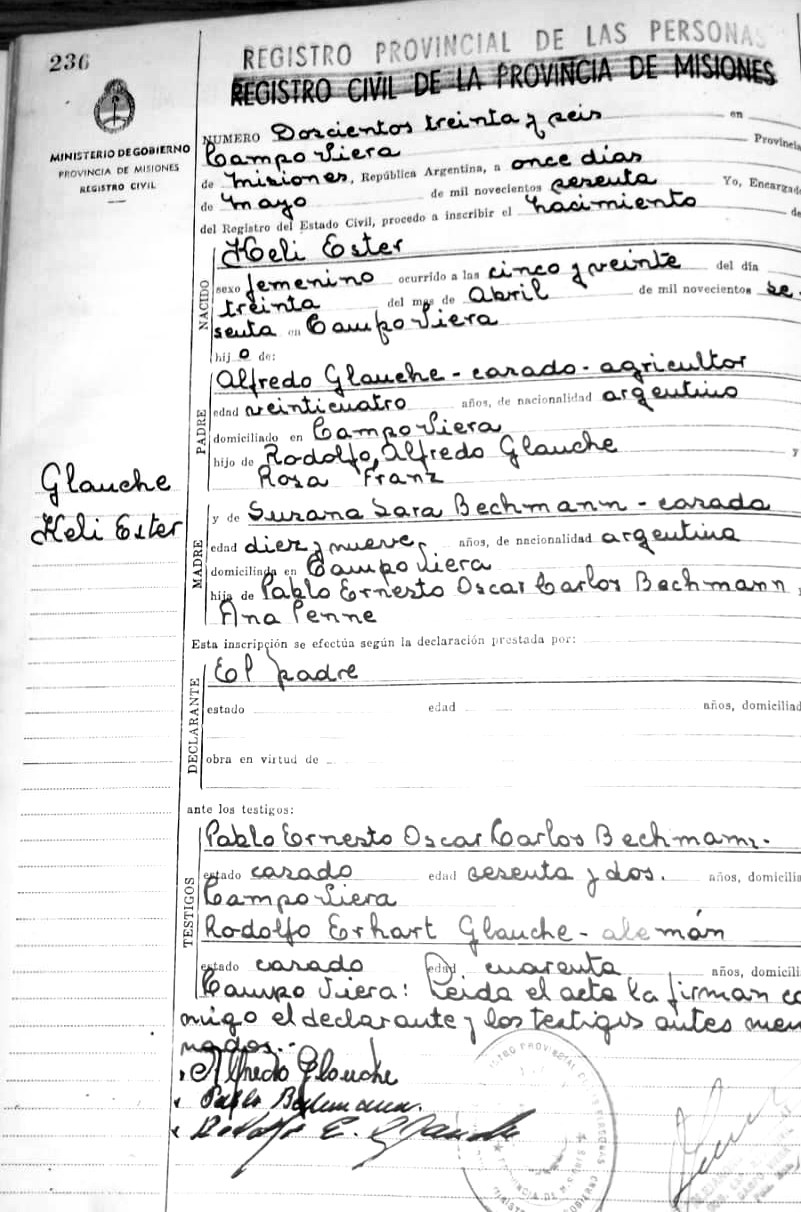 236
REGISTRO PROVINCIAL DE LAS PERSONAS
REGISTRO CIVIL DE LA PROVINCIA DE MISIONES
MINISTERIO DE GOBIERNO
PROVINCIA DE MISIONES
REGISTRO CIVIL
NUMERO Doscientos treinta y seis en
Campo Viera Provincia
de Misiones, República Argentina, a once días
de Mayo de mil novecientos sesenta Yo, Encargado
del Registro del Estado Civil, procedo a inscribir el nacimiento de
NACIDO
Heli Ester
sexo femenino ocurrido a las cinco y veinte del día
treinta del mes de Abril de mil novecientos se-
senta en Campo Viera
hijo de:
PADRE
Alfredo Glauche - casado - agricultor
edad veinticuatro años, de nacionalidad argentino
domiciliado en Campo Viera
hijo de Rodolfo, Alfredo Glauche y
Rosa Franz
Glauche
Heli Ester
MADRE
y de Susana Sara Bechmann - casada
edad diez y nueve, años, de nacionalidad argentina
domiciliada en Campo Viera
hija de Pablo Ernesto Oscar Carlos Bechmann y
Ana Penne
Esta inscripción se efectúa según la declaración prestada por:
DECLARANTE
El padre
estado edad años, domiciliad
obra en virtud de
ante los testigos:
TESTIGOS
Pablo Ernesto Oscar Carlos Bechmann.
estado casado edad sesenta y dos. años, domicilia
Campo Viera
Rodolfo Erhart Glauche - alemán
estado casado edad cuarenta años, domicili
Campo Viera: Leida el acta la firman co
migo el declarante y los testigis antes men
nados.-
Alfredo Glauche
Pablo Bechmann.
Rodolfo E. Glauche